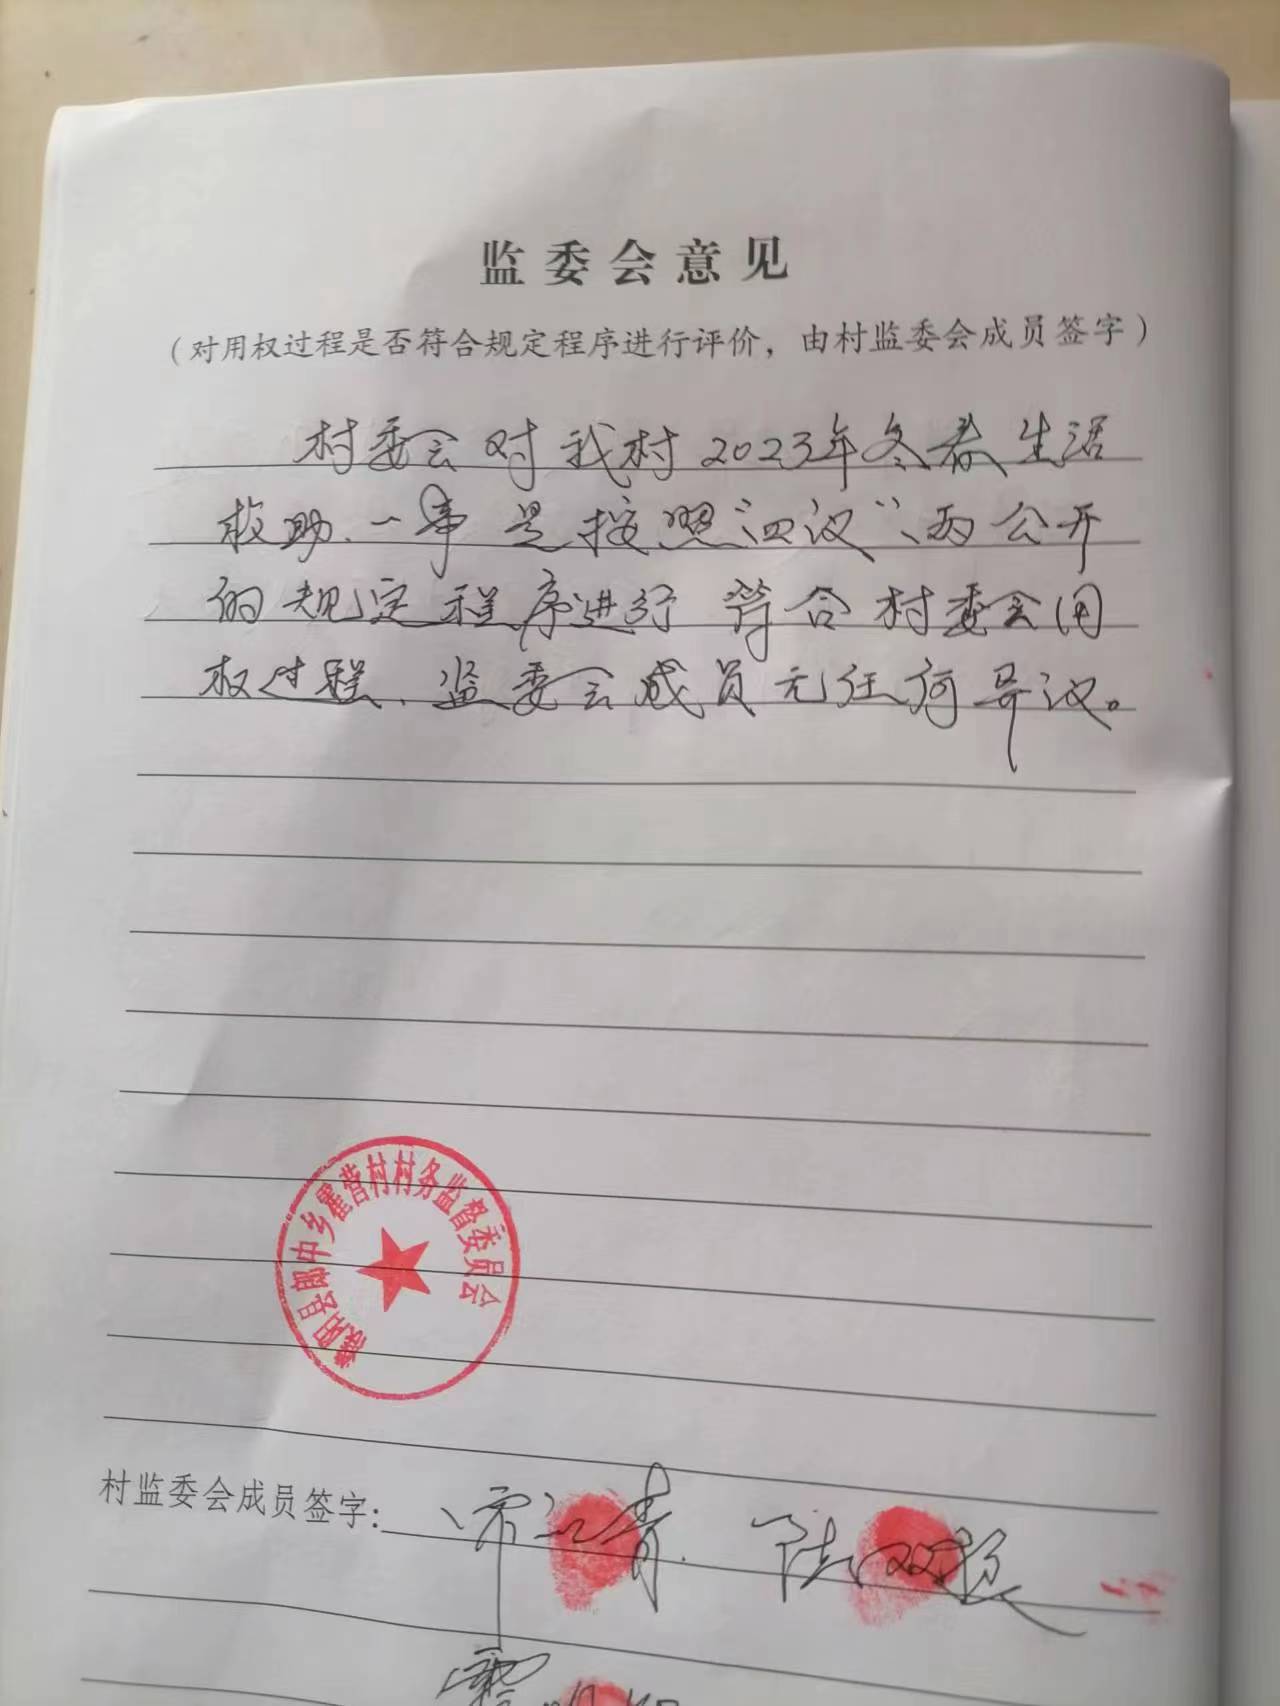 监委会意见
（对用权过程是否符合规定程序进行评价，由村监委会成员签字）
村委会对我村2023年冬春生活
救助、一事是按照“四议”、两公开
的规定程序进行符合村委会用
权过程、监委会成员无任何异议。
濮阳县郎中乡霍营村村务监督委员会
村监委会成员签字：
陆双根